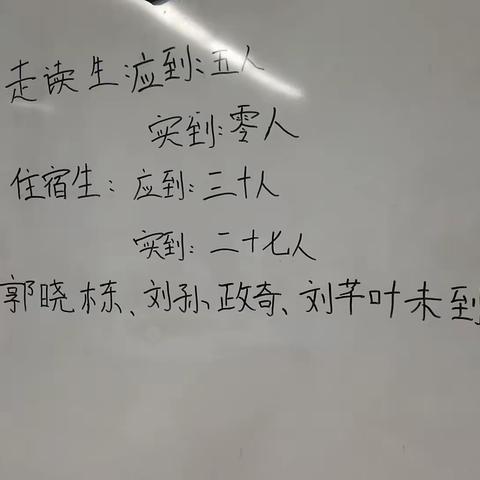 走读生:应到:五人
实到:零人
住宿生:应到:三十人
实到:二十七人
郭晓栋、刘孙政奇、刘芊叶未到